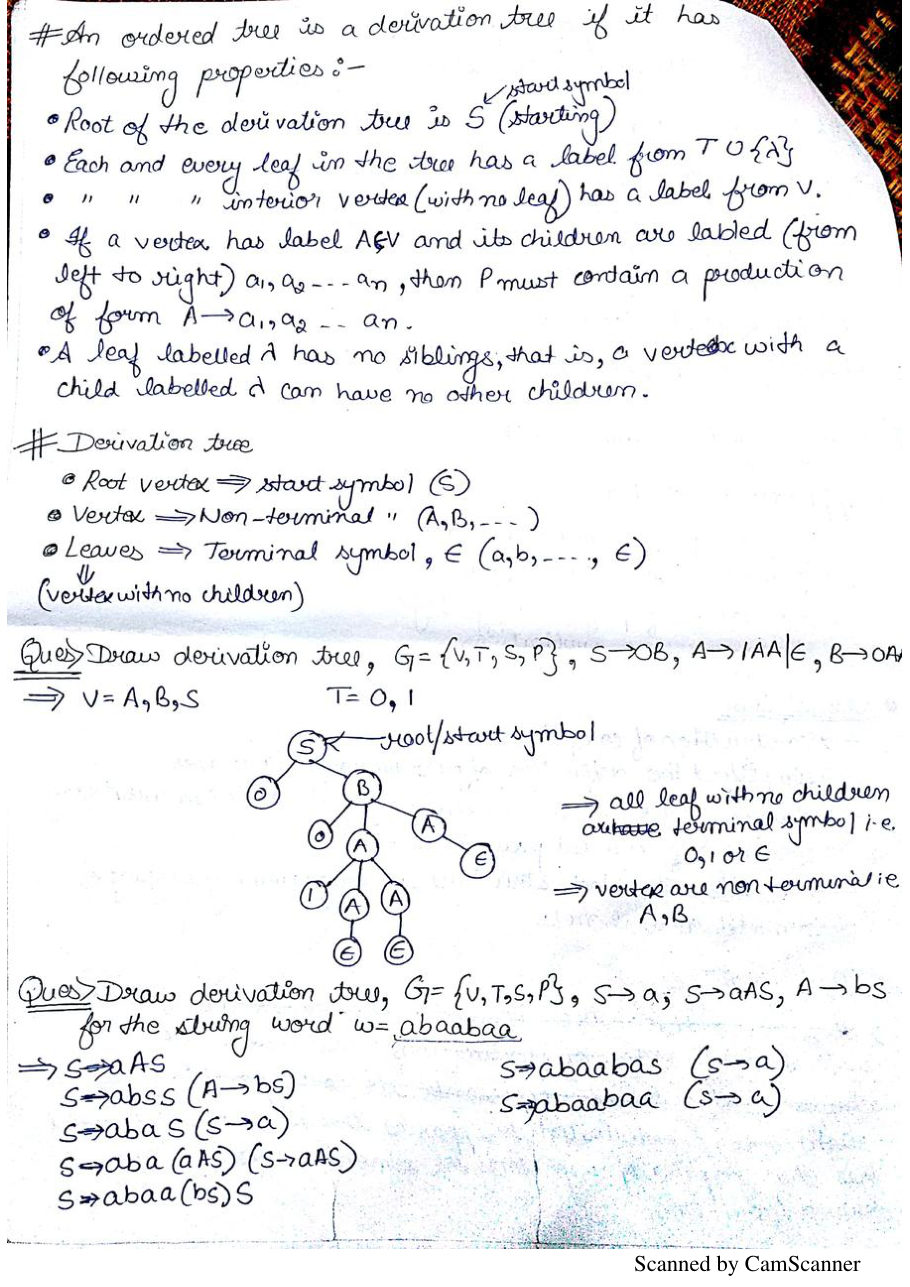 # An ordered tree is a derivation tree if it has
following properties :-
start symbol
• Root of the derivation tree is S (starting)
• Each and every leaf in the tree has a label from T U {λ}
• " " " interior vertex (with no leaf) has a label from V.
• If a vertex has label A∈V and its children are labled (from
left to right) a₁, a₂ --- an, then P must contain a production
of form A → a₁, a₂ -- an.
• A leaf labelled λ has no siblings, that is, a vertex with a
child labelled λ can have no other children.
# Derivation tree
• Root vertex ⇒ start symbol (S)
• Vertex ⇒ Non-terminal " (A, B, ---- )
• Leaves ⇒ Terminal symbol, ∈ (a, b, ----, ∈)
⇓
(vertex with no children)
Ques> Draw derivation tree, G = {V, T, S, P}, S→0B, A→1AA|∈, B→0AA
⇒ V = A, B, S T = 0, 1
S ← root/start symbol
0 B
0 A A
∈
1 A A
∈ ∈
⇒ all leaf with no children
are terminal symbol i.e.
0, 1 or ∈
⇒ vertex are non terminal ie
A, B
Ques> Draw derivation tree, G = {V, T, S, P}, S→a; S→aAS, A→bS
for the string word w = abaabaa
⇒ S⇒aAS
S⇒abSS (A→bS)
S⇒abaS (S→a)
S⇒aba(aAS) (S→aAS)
S⇒abaa(bS)S
S⇒abaabaS (S→a)
S⇒abaabaa (S→a)
Scanned by CamScanner